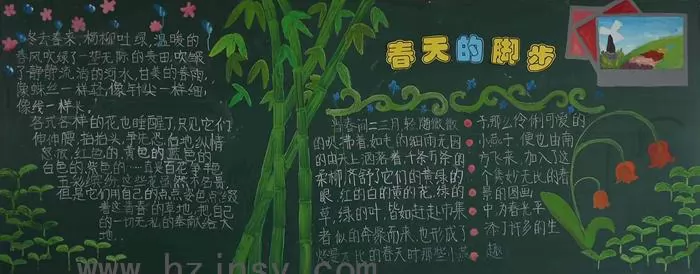 冬去春来，杨柳吐绿，温暖的
春风吹绿了一望无际的麦田，吹皱
了静静流淌的河水，甘美的春雨，
像蛛丝一样轻，像针尖一样细，
像线一样长，
各式各样的花也睡醒了，只见它们
伸伸腰，抬抬头，争先恐后地纵情
怒放，红色的，黄色的蓝色的
白色的，紫色的
但是它们用自己的点点姿色点缀
着这青春的草地，把自己
的一切无私的奉献给大
地。
春天的脚步
青春间二三月，轻随微微
的吹拂着，如毛的细雨无因
的由天上洒落着，千条万条的
柔柳，齐舒了它们的黄绿的
眼，红的白的黄的花，绿的
草，绿的叶，皆如赶赴市集
者似的奔聚而来，也形成了
烂漫无比的春天时那些小燕
子，那么伶俐可爱的
小燕子，便也由南
方飞来，加入了这
个隽妙无比的春
景的图画
中，为春光平
添了许多的生
趣
www.hzjnsy.com